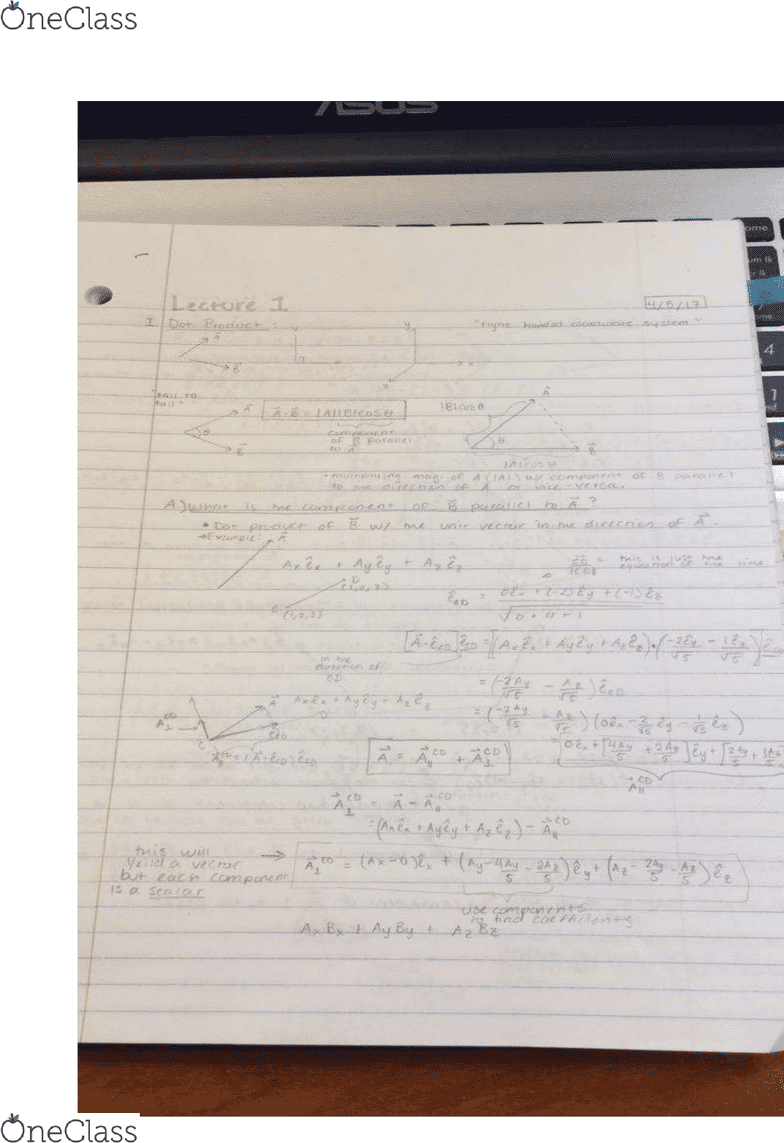 OneClass
ASUS
Lecture 1
4/5/17
I. Dot Product:
"right handed coordinate system"
"tail to tail"
A⃗·B⃗ = |A||B|cosθ
|B|cosθ
component
of B⃗ parallel
to A⃗
|A|cosθ
• multiplying mag. of A (|A|) w/ component of B parallel
to the direction of A or vice versa.
A.) What is the component of B⃗ parallel to A⃗?
• Dot product of B⃗ w/ the unit vector in the direction of A⃗.
→Example:
Axêx + Ayêy + Azêz
this is just the
equation of the line
C (1,0,3)
êCD = (0êx + (-2)êy + (-1)êz) / √(0+4+1)
[A⃗·êCD]êCD = [(Axêx + Ayêy + Azêz)·(-2êy/√5 - 1êz/√5)]êCD
in the
direction of
CD.
= (-2Ay/√5 - Az/√5)êCD
A⃗ Axêx + Ayêy + Azêz
= (-2Ay/√5 - Az/√5)(0êx - 2/√5 êy - 1/√5 êz)
A⃗∥ᶜᴰ = (A⃗·êCD)êCD
A⃗ = A⃗∥ᶜᴰ + A⃗⊥ᶜᴰ
= 0êx + [4Ay/5 + 2Az/5]êy + [2Ay/5 + 1Az/5
A⃗∥ᶜᴰ
A⃗⊥ᶜᴰ = A⃗ - A⃗∥ᶜᴰ
= (Axêx + Ayêy + Azêz) - A⃗∥ᶜᴰ
this will
yeild a vector
but each component
is a scalar
→ A⃗⊥ᶜᴰ = (Ax-0)êx + (Ay - 4Ay/5 - 2Az/5)êy + (Az - 2Ay/5 - Az/5)êz
use components
to find coefficients
AxBx + AyBy + AzBz
OneClass